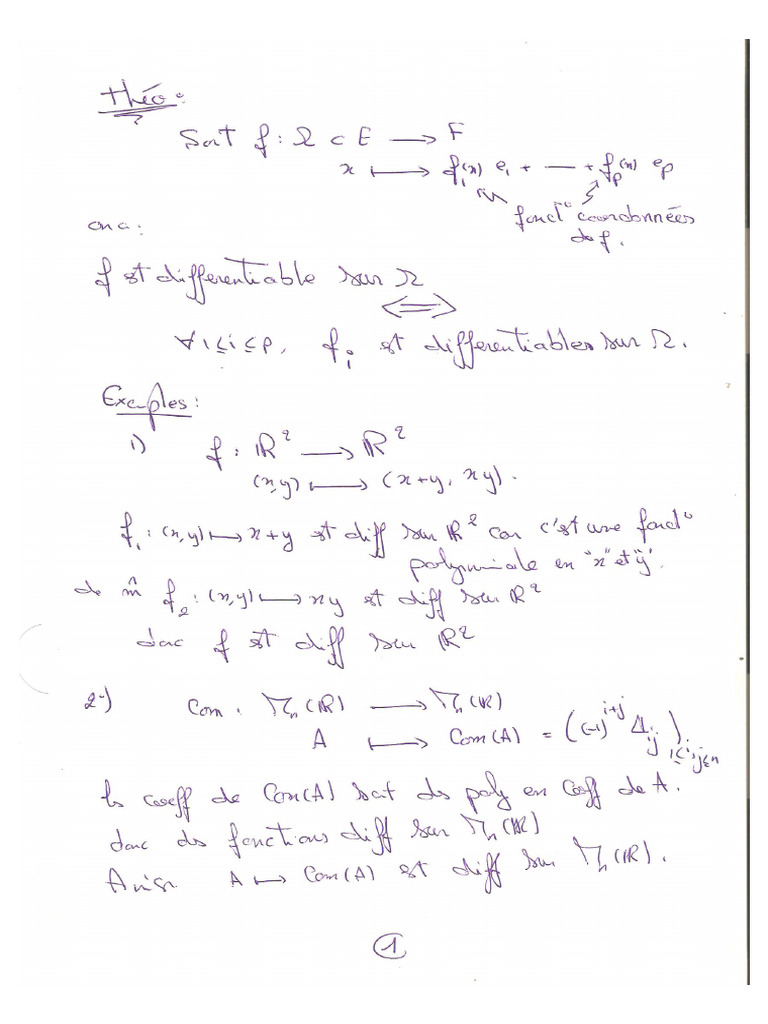 Théo :
Soit f : Ω ⊂ E ⟶ F
x ⟼ f₁(x) e₁ + — + f_p(x) e_p
fonct° coordonnées
de f.
on a :
f est differentiable sur Ω
⟺
∀ 1≤i≤p, f_i est differentiables sur Ω.
Exemples :
1) f : ℝ² ⟶ ℝ²
(x,y) ⟼ (x+y, xy).
f₁ : (x,y) ⟼ x+y est diff sur ℝ² car c'est une fonct°
polynomiale en "x" et "y".
de m̂ f₂ : (x,y) ⟼ xy est diff sur ℝ²
donc f est diff sur ℝ²
2°) Com : M_n(ℝ) ⟶ M_n(ℝ)
A ⟼ Com(A) = ((-1)^{i+j} Δ_{ij})_{1≤i,j≤n}
les coeff de Com(A) sont des poly en Coeff de A.
donc des fonctions diff sur M_n(ℝ)
Ainsi A ⟼ Com(A) est diff sur M_n(ℝ).
1